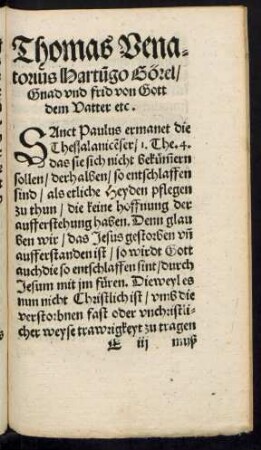 Thomas Vena-
torius Hartũgo Görel/
Gnad vnd frid von Gott
dem Vatter etc.
SAnct Paulus ermanet die
Thessalanicẽser/ 1. The. 4.
das sie sich nicht bekũm̃ern
sollen/ derhalben/ so entschlaffen
sind/ als etliche Heyden pflegen
zu thun/ die keine hoffnung der
aufferstehung haben. Denn glau
ben wir/ das Jesus gestorben vñ
aufferstanden ist/ so wirdt Gott
auch die so entschlaffen sint/ durch
Jesum mit jm füren. Dieweyl es
nun nicht Christlich ist/ vmb die
verstorbnen fast oder vnchristli-
cher weyse trawrigkeyt zu tragen
E iij muß